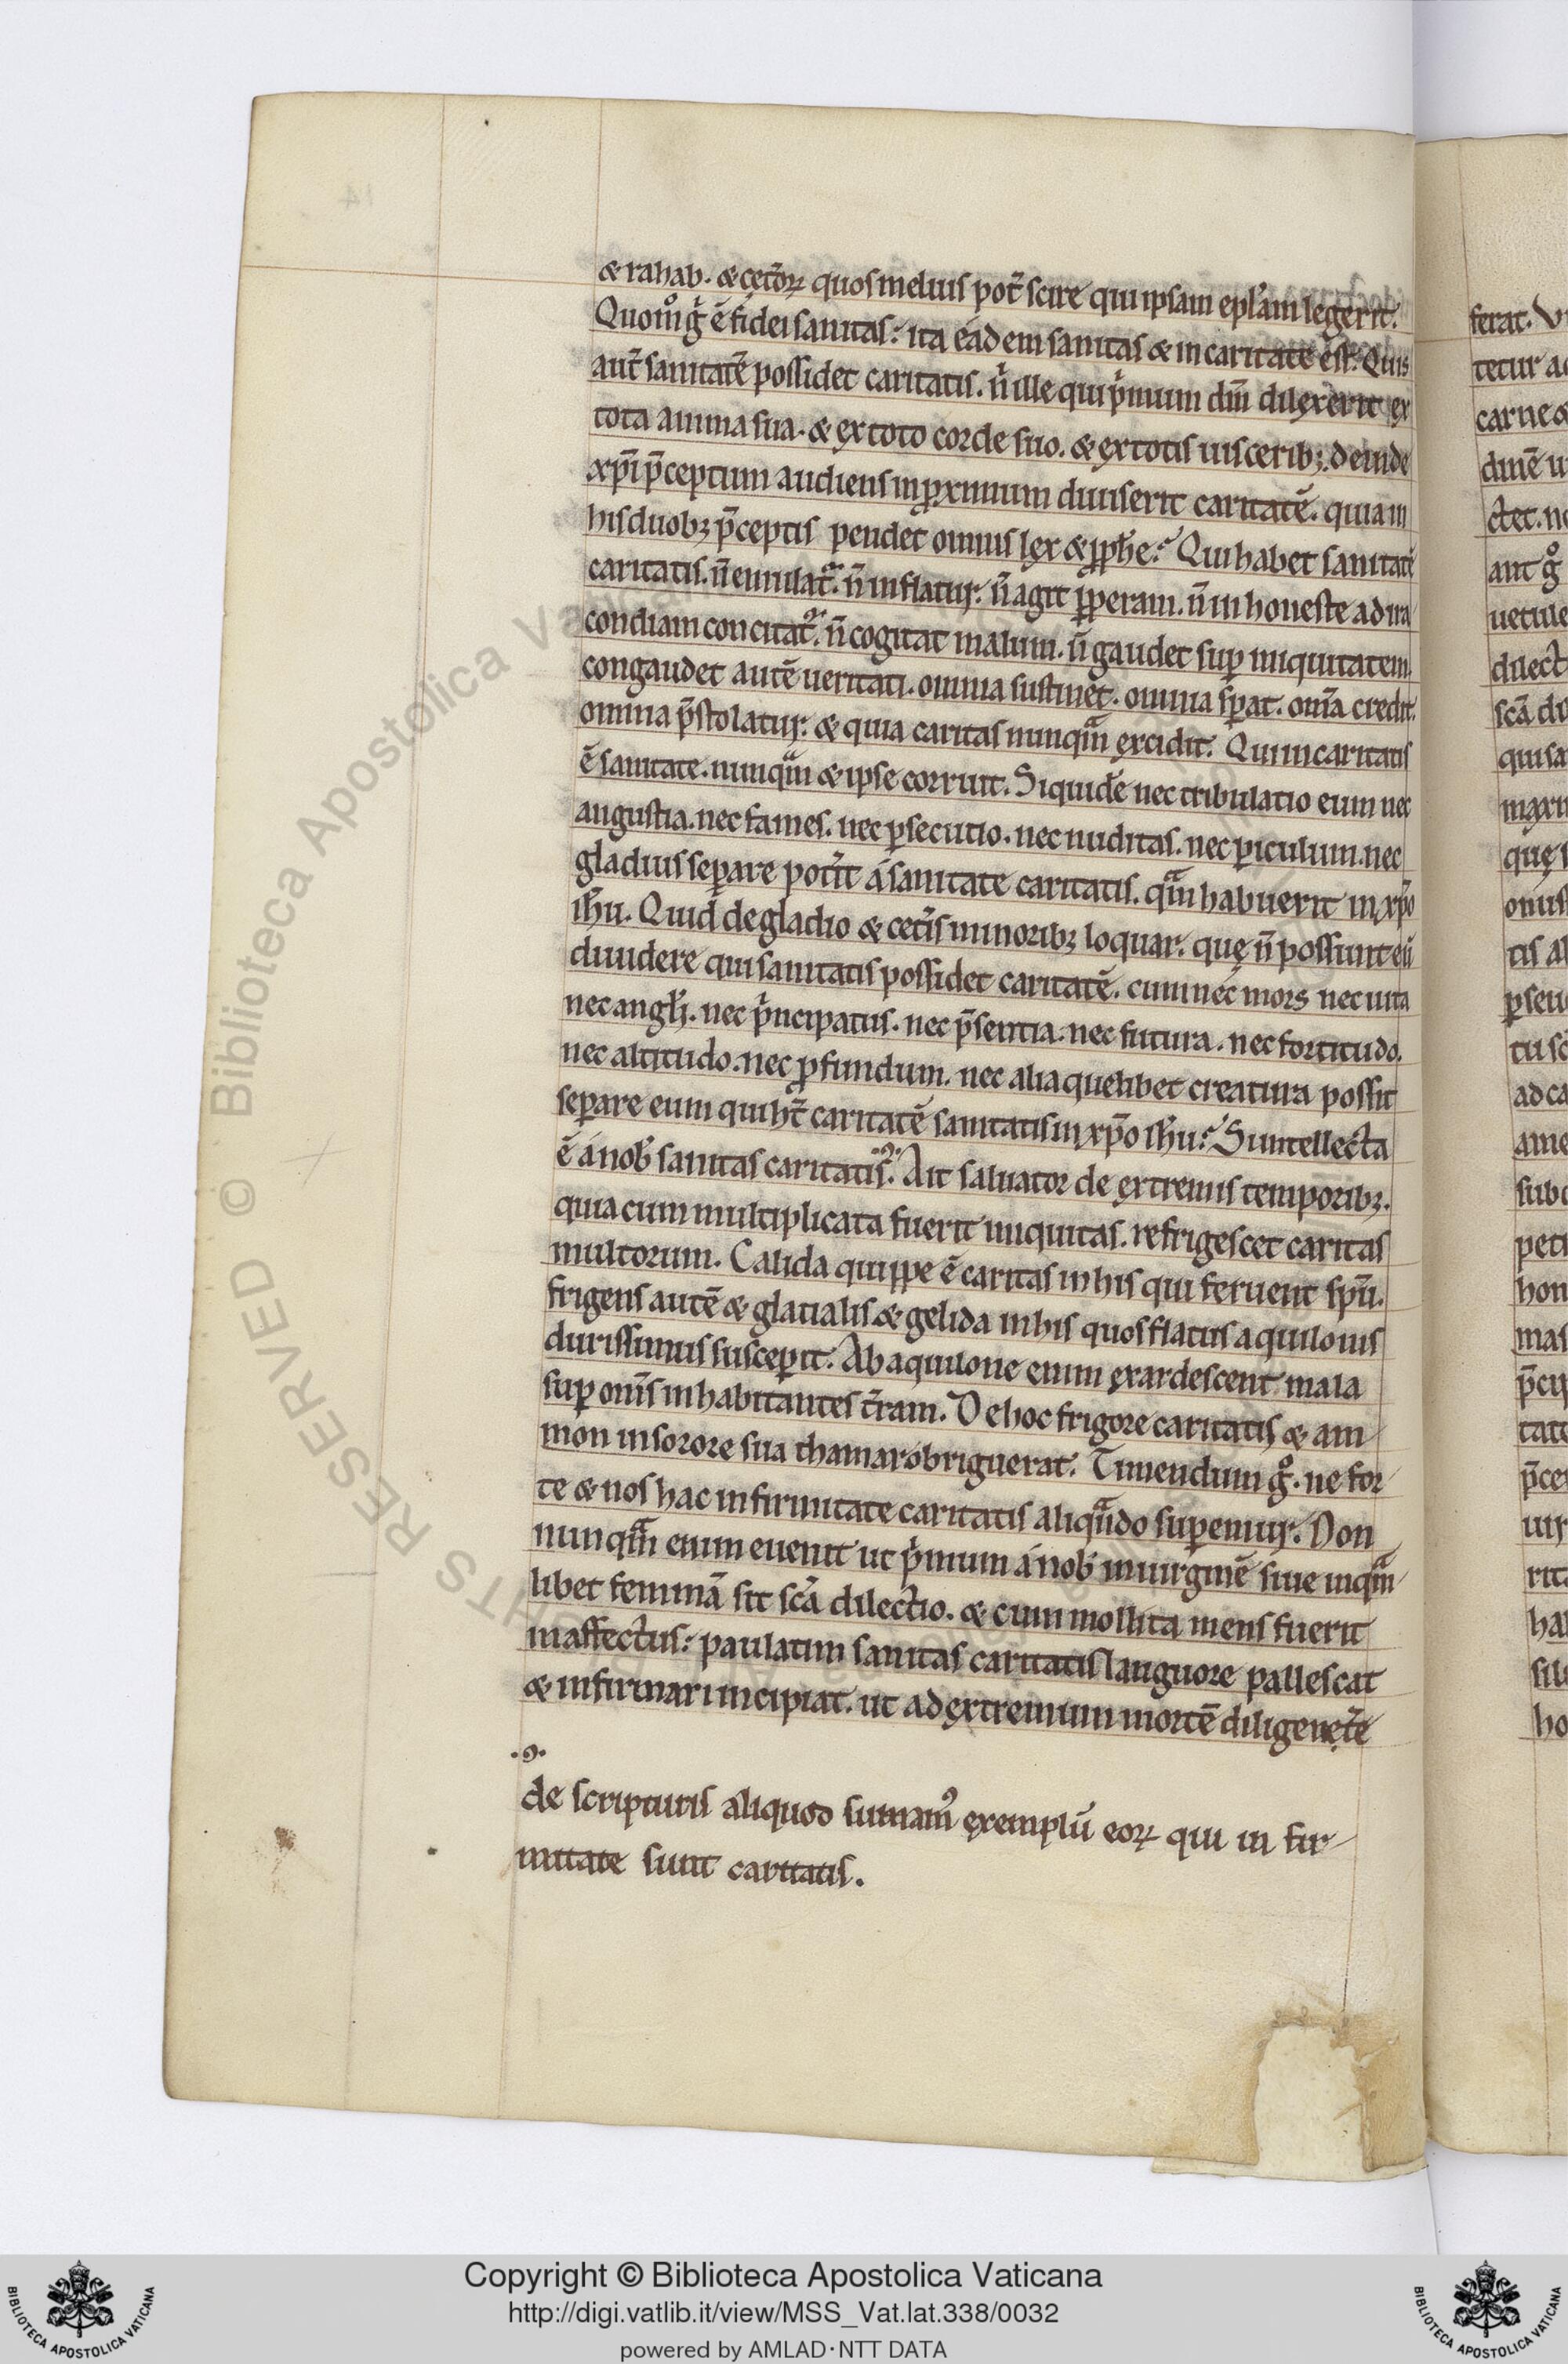 & rahab. & cęt̄oꝝ quos melius pot̄ scire qui ip̄sam epl̄am legerit.
Quom̊ gͥ ē fidei sanitas: ita eadem sanitas & in caritate est. Quis
aut̄ sanitatē possidet caritatis. nͥ ille qui pͥmum dm̄ dilexerit ex
tota anima sua. & ex toto corde suo. & ex totis uisceribꝫ. deinde
xp̄i p̄ceptum audiens in ꝓxximum diuiserit caritatē. quia in
his duobꝫ p̄ceptis pendet omnis lex & ꝓph̄e. Qui habet sanitatē
caritatis. n̄ emulat᷑. n̄ inflatur. n̄ agit ꝑperam. n̄ inhoneste ad ira-
condiam concitat᷑. n̄ cogitat malum. n̄ gaudet suꝑ iniquitatem.
congaudet autē ueritati. omnia sustinet. omnia sꝑat. om̄a credit.
omnia p̄stolatur. & quia caritas nunqͣm excidit. Qui in caritatis
ē sanitate. nunqͣm & ipse corruit. Siquidē nec tribulatio eum nec
angustia. nec fames. nec ꝑsecutio. nec nuditas. nec ꝑiculum. nec
gladius seꝑare pot̄it á sanitate caritatis. qͣm habuerit in xp̄o
ihu̅. Quid de gladio & cet̄is minoribꝫ loquar. quę n̄ possunt eū
diuidere qui sanitatis possidet caritatē. cum nec mors nec uita
nec angl̄i. nec pͥncipatus. nec p̄sentia. nec futura. nec fortitudo.
nec altitudo. nec ꝓfundum. nec alia quelibet creatura possit
seꝑare eum qui ht̄ caritatē sanitatis in xp̄o ihu̅. Si intellecta
ē á nob̄ sanitas caritatis .ꝯ. Ait saluator de extremis temporibꝫ.
quia cum multiplicata fuerit iniquitas. refrigescet caritas
multorum. Calida quippe ē caritas in his qui feruent sp̄u.
frigens autē & glatialis & gelida in his quos flatus aquilonis
durissimus susceꝑit. Ab aquilone enim exardescent mala
suꝑ om̄s inhabitantes t̄ram. De hoc frigore caritatis & am-
mon in sorore sua thamar obriguerat. Timendum gͦ. ne for-
te & nos hac infirmitate caritatis aliqͣndo suꝑemur. Non
nunqͣm enim euenit ut pͥmum á nob̄ in uirginē siue in qͣm-
libet feminā sit sc̄a dilectio. & cum mollita mens fuerit
in affectus: paulatim sanitas caritatis languore pallescat
& infirmari incipiat. ut ad extremum mortē diligent̄
.ꝯ.
de scripturis aliquod sumamꝰ exemplū eoꝝ qui in fir-
mitate sunt caritatis.
ferat.
carne &
ant gͦ
quisa
quę
tis al
ad ca
ame
subd
peti
hon
mas
tate
ho
14
© Biblioteca Apostolica Vaticana
RIGHTS RESERVED
Copyright © Biblioteca Apostolica Vaticana
http://digi.vatlib.it/view/MSS_Vat.lat.338/0032
powered by AMLAD·NTT DATA
BIBLIOTECA APOSTOLICA VATICANA
BIBLIOTECA APOSTOLICA VATICANA